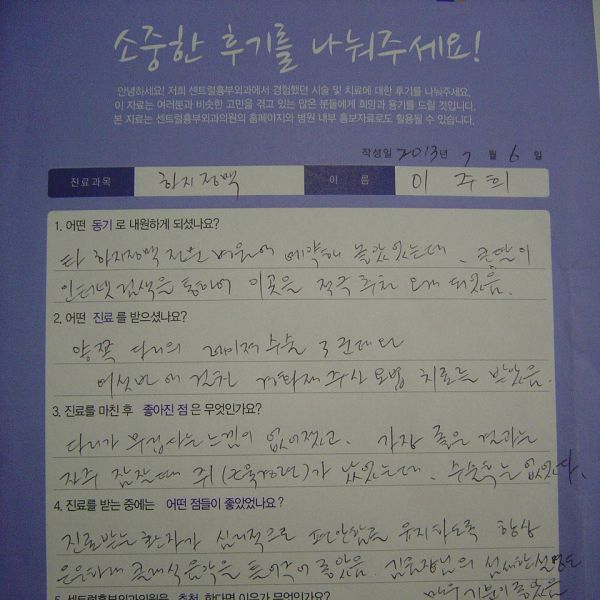 소중한 후기를 나눠주세요!
안녕하세요! 저희 센트럴흉부외과에서 경험했던 시술 및 치료에 대한 후기를 나눠주세요.
이 자료는 여러분과 비슷한 고민을 겪고 있는 많은 분들에게 희망과 용기를 드릴 것입니다.
본 자료는 센트럴흉부외과의원의 홈페이지와 병원 내부 홍보자료로도 활용될 수 있습니다.
작성일 2013년 7 월 6 일
진료과목 하지정맥 이 름 이 주 희
1. 어떤 동기 로 내원하게 되셨나요?
타 하지정맥 전문 병원에 예약해 놓았었는데, 큰딸이
인터넷 검색을 통하여 이곳을 적극 추천 오게 되었음.
2. 어떤 진료 를 받으셨나요?
양쪽 다리의 레이저 수술 3군데와
여섯번에 걸친 경화제 주사 요법 치료를 받았음.
3. 진료를 마친 후 좋아진 점 은 무엇인가요?
다리가 무겁다는 느낌이 없어졌고. 가장 좋은 결과는
자주 잠잘때 쥐(근육경련)가 났었는데, 수술후는 없었다.
4. 진료를 받는 중에는 어떤 점들이 좋았었나요?
진료받는 환자가 심리적으로 편안함을 유지하도록 항상
은은하게 클래식음악을 틀어주어 좋았음. 김원장님의 섬세한 설명도
매우 기분이 좋았음
5. 센트럴흉부외과의원을 추천 한다면 이유가 무엇인가요?